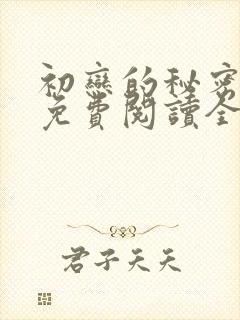 初戀的秘密
免費閱讀全
君子天天